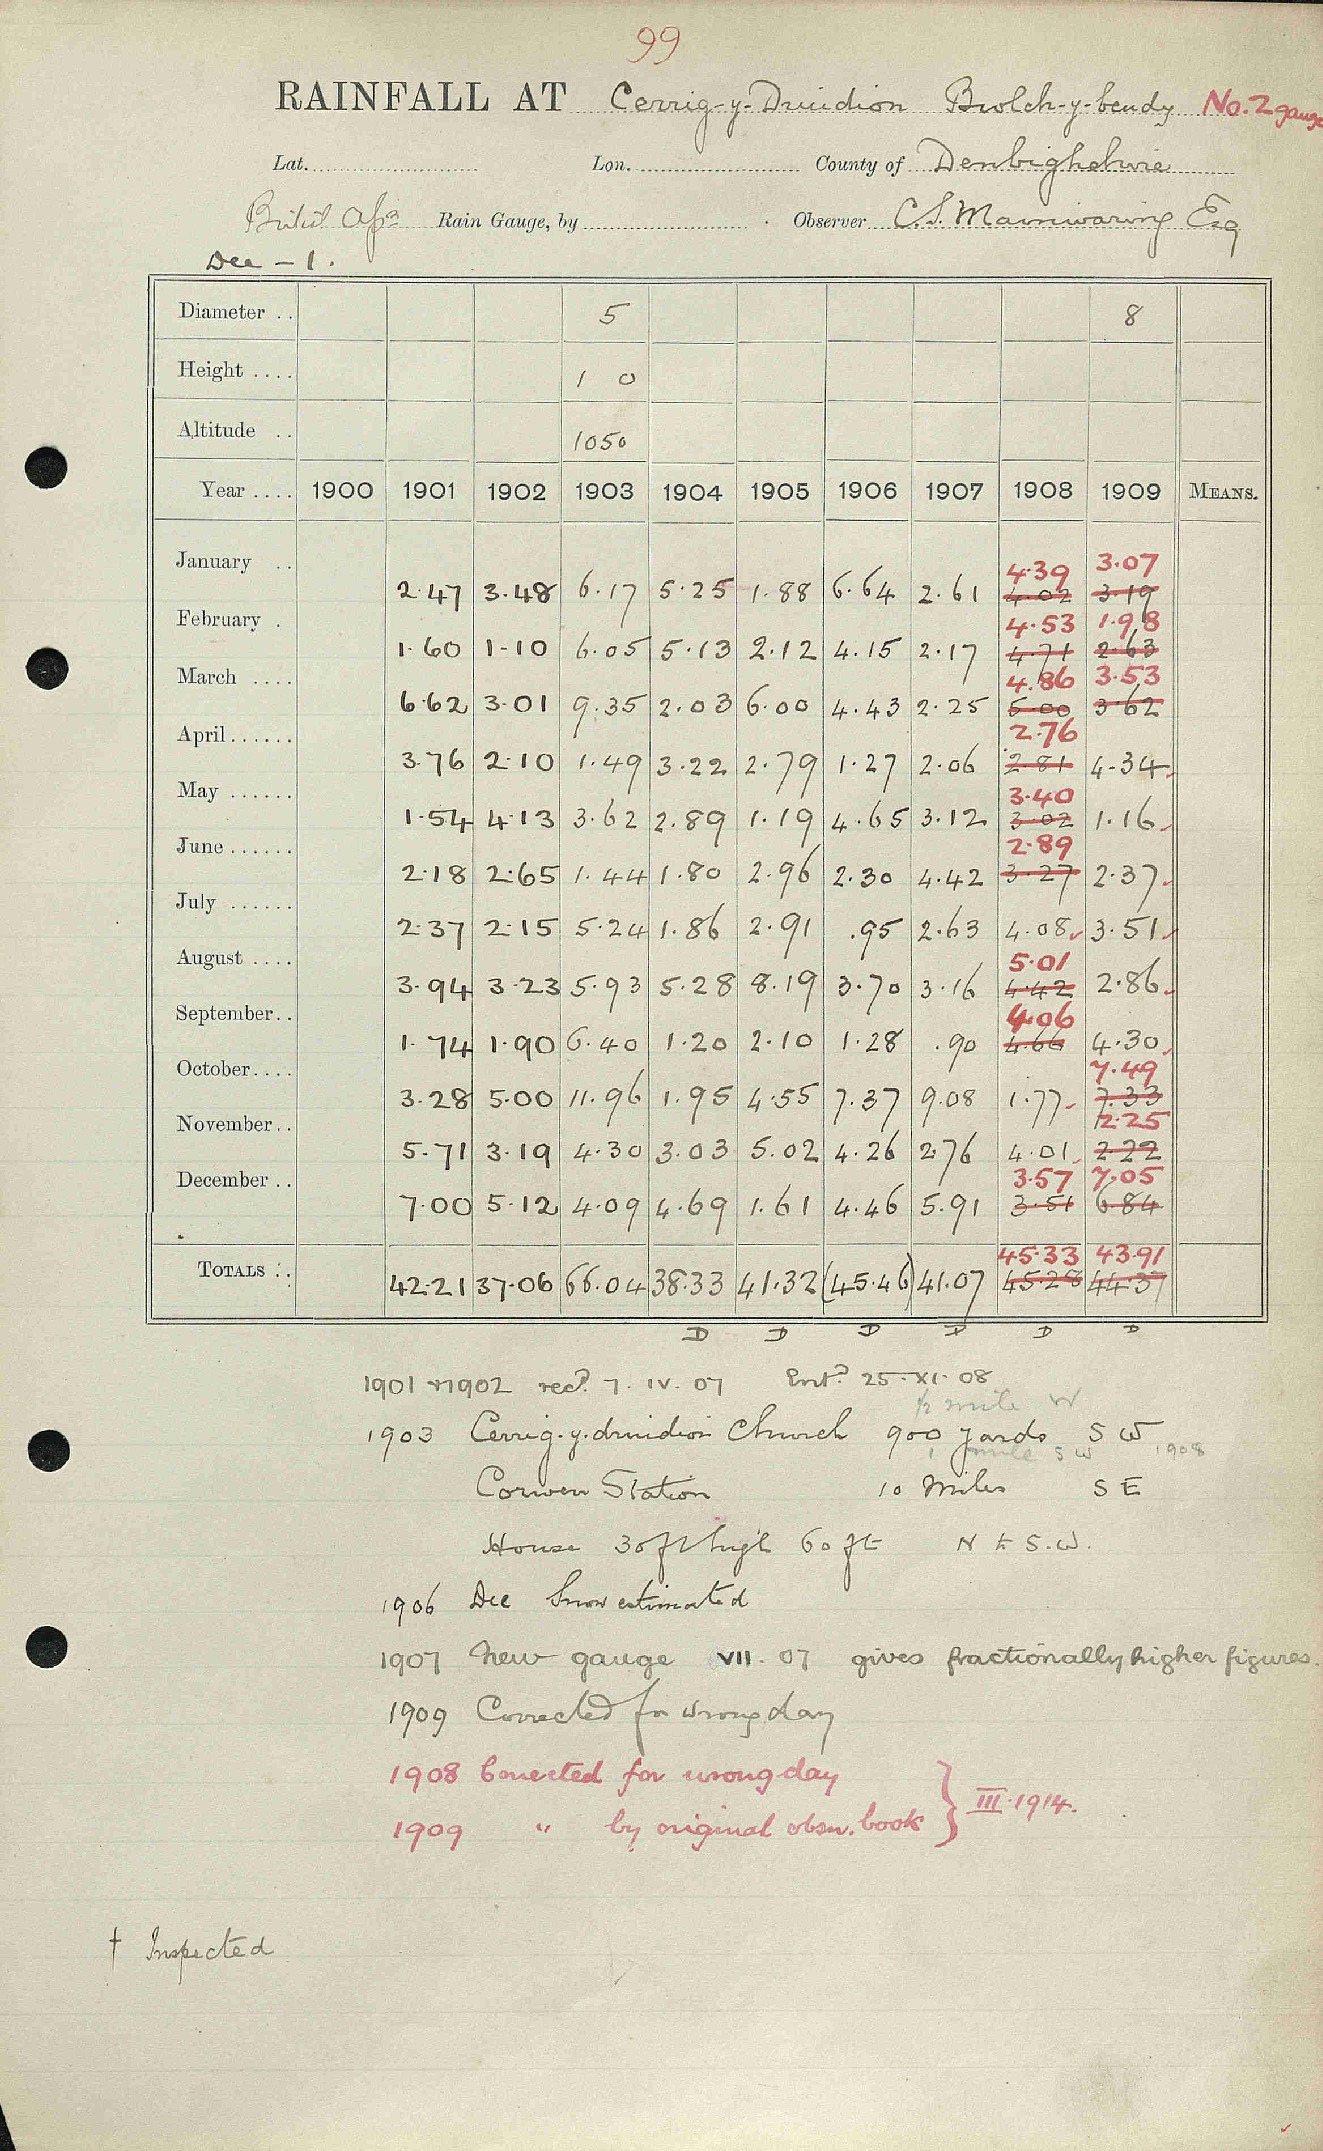 99
RAINFALL AT Cerrig-y-Druidion Bwlch-y-beudy No. 2 gauge
Lat. Lon. County of Denbighshire
Rain Gauge, by Observer C.S. Mainwaring Esq
Dec - 1.
Diameter .. 5 8
Height .... 1 0
Altitude .. 1050
Year .... 1900 1901 1902 1903 1904 1905 1906 1907 1908 1909 MEANS.
4.39 3.07
January .. 2.47 3.48 6.17 5.25 1.88 6.64 2.61 4.02 3.19
4.53 1.98
February . 1.60 1.10 6.05 5.13 2.12 4.15 2.17 4.71 2.63
4.86 3.53
March .... 6.62 3.01 9.35 2.03 6.00 4.43 2.25 5.00 3.62
2.76
April...... 3.76 2.10 1.49 3.22 2.79 1.27 2.06 2.81 4.34
3.40
May ...... 1.54 4.13 3.62 2.89 1.19 4.65 3.12 3.02 1.16
2.89
June ...... 2.18 2.65 1.44 1.80 2.96 2.30 4.42 3.27 2.37
July ...... 2.37 2.15 5.24 1.86 2.91 .95 2.63 4.08 3.51
5.01
August .... 3.94 3.23 5.93 5.28 8.19 3.70 3.16 4.42 2.86
4.06
September.. 1.74 1.90 6.40 1.20 2.10 1.28 .90 4.66 4.30
7.49
October.... 3.28 5.00 11.96 1.95 4.55 7.37 9.08 1.77 7.33
2.25
November.. 5.71 3.19 4.30 3.03 5.02 4.26 2.76 4.01 2.22
3.57 7.05
December .. 7.00 5.12 4.09 4.69 1.61 4.46 5.91 3.51 6.84
45.33 43.91
TOTALS .. 42.21 37.06 66.04 38.33 41.32 (45.46) 41.07 45.28 44.37
D D D D D D
1901 & 1902 recd. 7.IV.07 Entd. 25.XI.08
1/2 mile W
1903 Cerrig-y-druidion Church 900 yards S W
1 mile S W 1908
Corwen Station 10 Miles S E
House 30 ft high 60 ft N to S.W.
1906 Dec Snow estimated
1907 New gauge VII.07 gives fractionally higher figures.
1909 Corrected for wrong day
1908 Corrected for wrong day
1909 " by original obsn. book } III.1914.
† Inspected